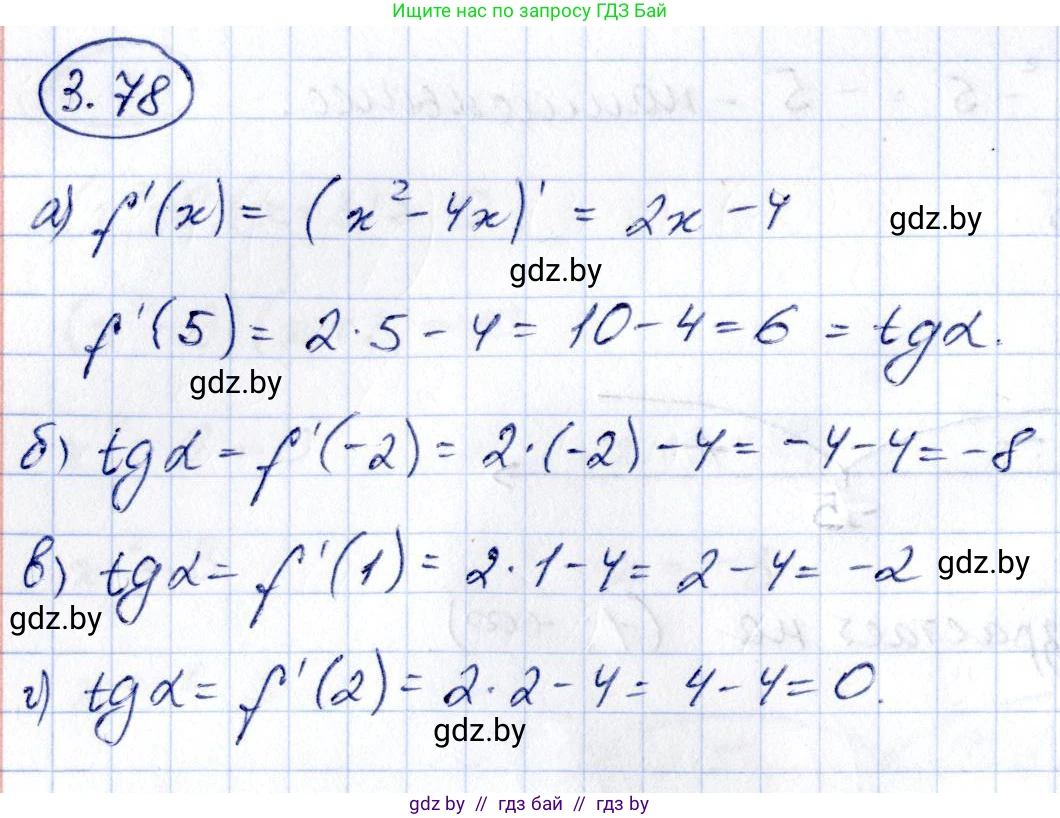 Ищите нас по запросу ГДЗ Бай
3.78
а) f'(x) = (x² - 4x)' = 2x - 4
gdz.by
gdz.by
f'(5) = 2·5 - 4 = 10 - 4 = 6 = tgα.
gdz.by
б) tgα = f'(-2) = 2·(-2) - 4 = -4 - 4 = -8
в) tgα = f'(1) = 2·1 - 4 = 2 - 4 = -2
gdz.by
gdz.by
г) tgα = f'(2) = 2·2 - 4 = 4 - 4 = 0.
gdz.by
gdz by // гдз бай // гдз by